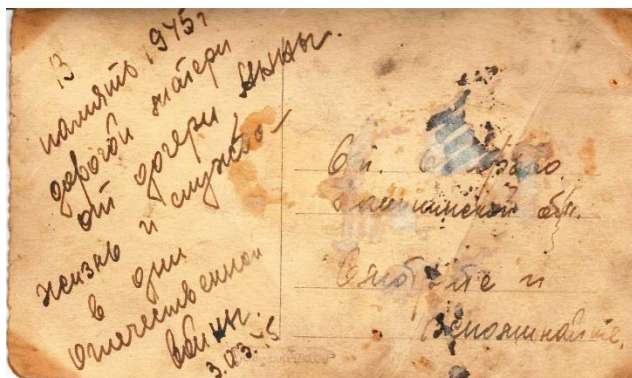 В
память 1945 г
дорогой матери
от дочери Нины.
жизнь и служба
в дни
отечественной
войны.
3.03.45
обл.
и
вспоминайте.